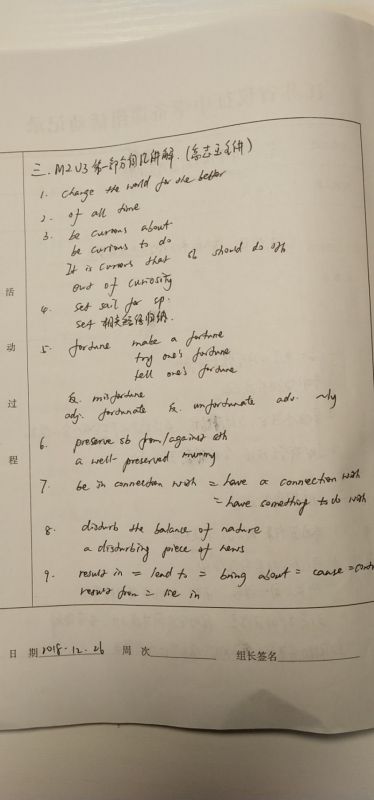 三. M2U3 第一部分词汇讲解.
1. change the world for the better
2. of all time
3. be curious about
be curious to do
It is curious that sb should do sth
out of curiosity
4. set sail for sp.
set 相关短语归纳.
5. fortune make a fortune
try one's fortune
tell one's fortune
反. misfortune
adj. fortunate 反. unfortunate adv. ~ly
6. preserve sb from/against sth
a well-preserved mummy
7. be in connection with = have a connection with
= have something to do with
8. disturb the balance of nature
a disturbing piece of news
9. result in = lead to = bring about = cause =
result from = lie in
活动过程
日 期 2018.12.26 周 次 组长签名